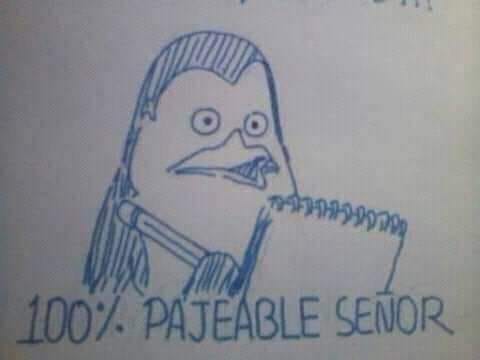 100% PAJEABLE SEÑOR